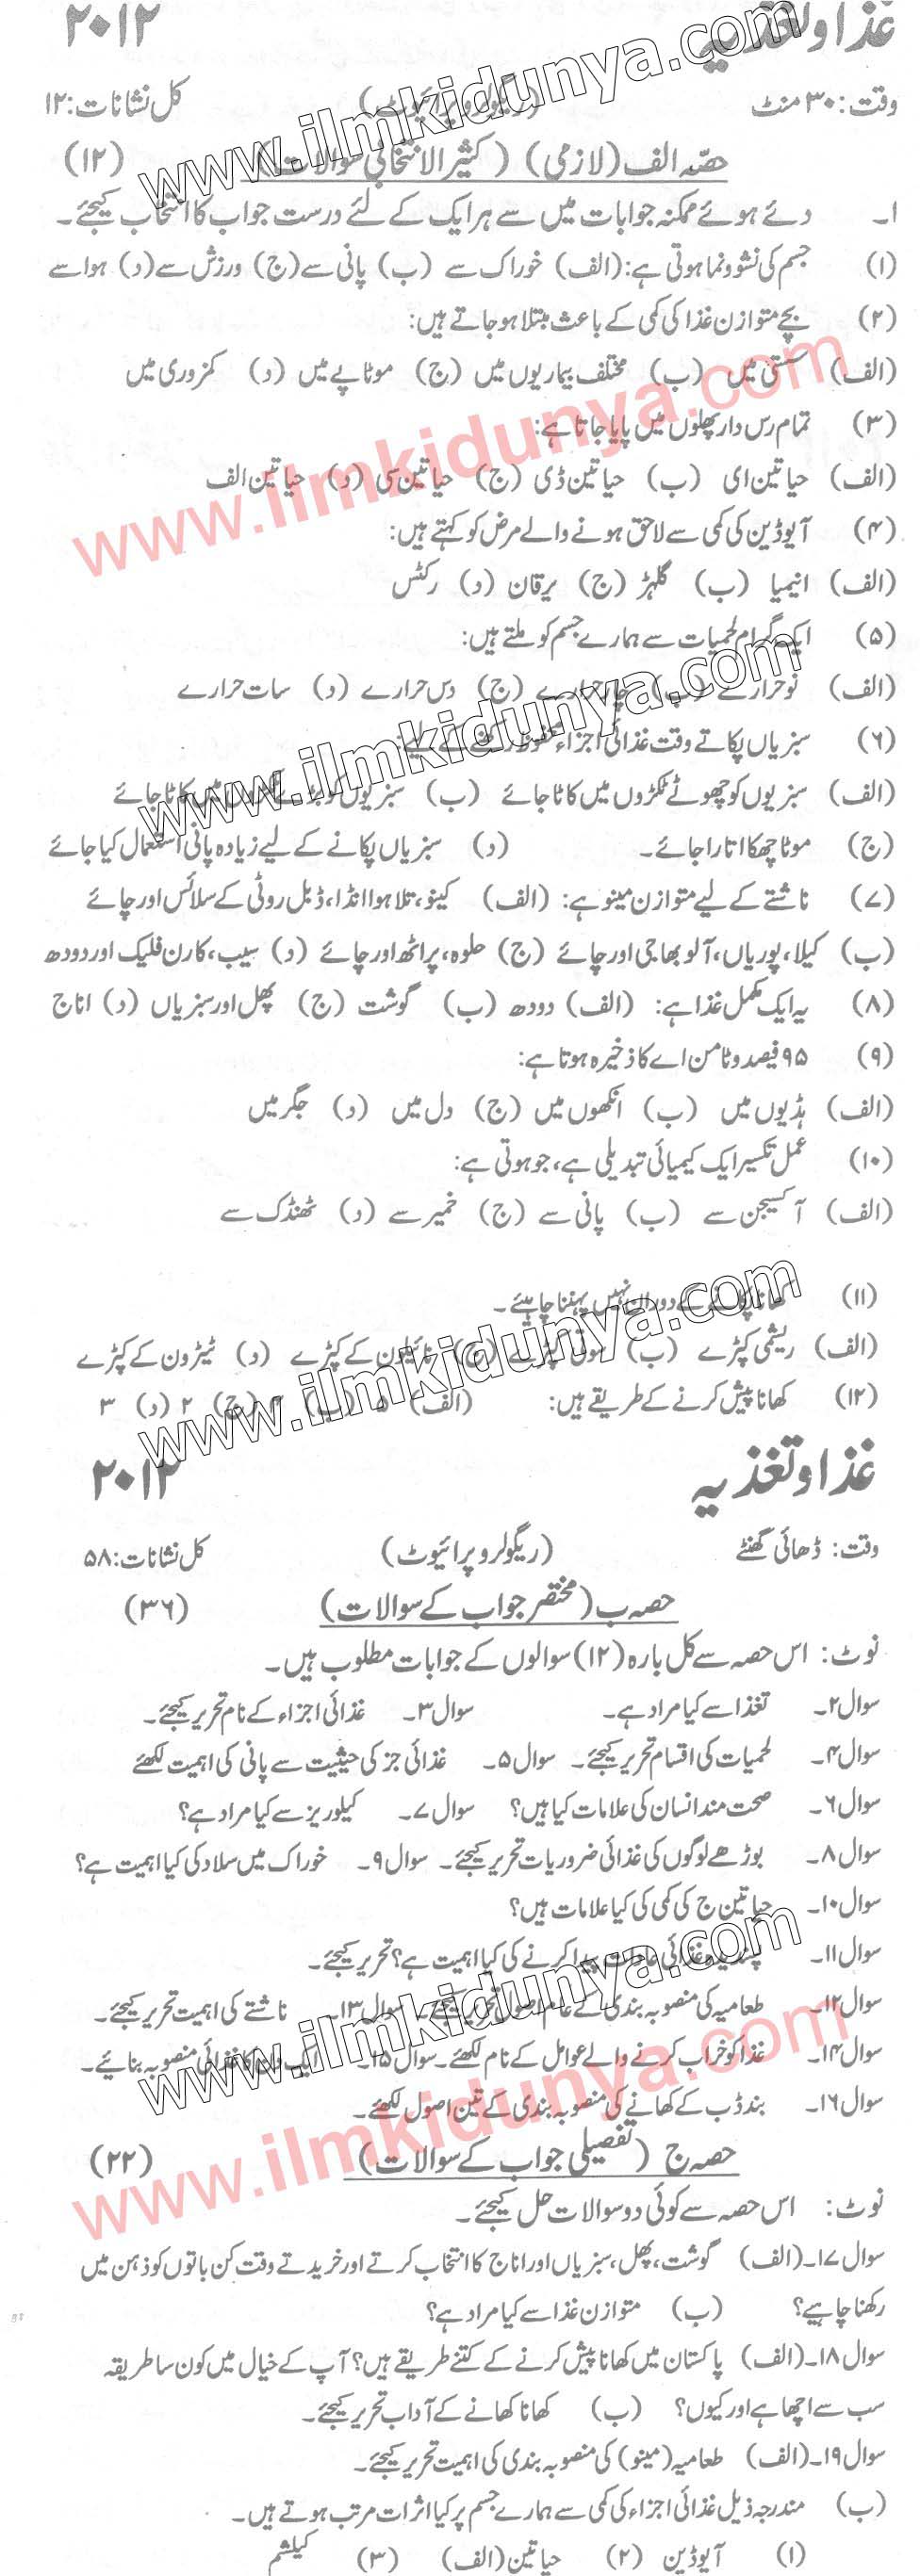 غذا و تغذیہ ۲۰۱۲
وقت: ۳۰ منٹ (ریگولر و پرائیوٹ) کل نشانات: ۱۲
حصّہ الف (لازمی) (کثیر الانتخابی سوالات) (۱۲)
۱۔ دئے ہوئے ممکنہ جوابات میں سے ہر ایک کے لئے درست جواب کا انتخاب کیجئے۔
(۱) جسم کی نشوونما ہوتی ہے: (الف) خوراک سے (ب) پانی سے (ج) ورزش سے (د) ہوا سے
(۲) بچے متوازن غذا کی کمی کے باعث مبتلا ہو جاتے ہیں:
(الف) سستی میں (ب) مختلف بیماریوں میں (ج) موٹاپے میں (د) کمزوری میں
(۳) تمام رس دار پھلوں میں پایا جاتا ہے:
(الف) حیاتین ای (ب) حیاتین ڈی (ج) حیاتین سی (د) حیاتین الف
(۴) آیوڈین کی کمی سے لاحق ہونے والے مرض کو کہتے ہیں:
(الف) انیمیا (ب) گلہڑ (ج) یرقان (د) رکٹس
(۵) ایک گرام لحمیات سے ہمارے جسم کو ملتے ہیں:
(الف) نو حرارے (ب) چار حرارے (ج) دس حرارے (د) سات حرارے
(۶) سبزیاں پکاتے وقت غذائی اجزاء محفوظ رکھنے کے لیے:
(الف) سبزیوں کو چھوٹے ٹکڑوں میں کاٹا جائے (ب) سبزیوں کو بڑے ٹکڑوں میں کاٹا جائے
(ج) موٹا چھلکا اتارا جائے۔ (د) سبزیاں پکانے کے لیے زیادہ پانی استعمال کیا جائے
(۷) ناشتے کے لیے متوازن مینو ہے: (الف) کینو، تلا ہوا انڈا، ڈبل روٹی کے سلائس اور چائے
(ب) کیلا، پوریاں، آلو بھاجی اور چائے (ج) حلوہ، پراٹھ اور چائے (د) سیب، کارن فلیک اور دودھ
(۸) یہ ایک مکمل غذا ہے: (الف) دودھ (ب) گوشت (ج) پھل اور سبزیاں (د) اناج
(۹) ۹۵ فیصد وٹامن اے کا ذخیرہ ہوتا ہے:
(الف) ہڈیوں میں (ب) انکھوں میں (ج) دل میں (د) جگر میں
(۱۰) عمل تکسیر ایک کیمیائی تبدیلی ہے، جو ہوتی ہے:
(الف) آکسیجن سے (ب) پانی سے (ج) خمیر سے (د) ٹھنڈک سے
(۱۱) کھانا پکانے کے دوران نہیں پہننا چاہئے۔
(الف) ریشمی کپڑے (ب) سوتی کپڑے (ج) نائیلون کے کپڑے (د) ٹیڑون کے کپڑے
(۱۲) کھانا پیش کرنے کے طریقے ہیں: (الف) ۵ (ب) ۴ (ج) ۲ (د) ۳
غذا و تغذیہ ۲۰۱۲
وقت: ڈھائی گھنٹے (ریگولر و پرائیوٹ) کل نشانات: ۵۸
حصہ ب (مختصر جواب کے سوالات) (۳۶)
نوٹ: اس حصہ سے کل بارہ (۱۲) سوالوں کے جوابات مطلوب ہیں۔
سوال ۲۔ تغذا سے کیا مراد ہے۔ سوال ۳۔ غذائی اجزاء کے نام تحریر کیجئے۔
سوال ۴۔ لحمیات کی اقسام تحریر کیجئے۔ سوال ۵۔ غذائی جز کی حیثیت سے پانی کی اہمیت لکھئے
سوال ۶۔ صحت مند انسان کی علامات کیا ہیں؟ سوال ۷۔ کیلوریز سے کیا مراد ہے؟
سوال ۸۔ بوڑھے لوگوں کی غذائی ضروریات تحریر کیجئے۔ سوال ۹۔ خوراک میں سلاد کی کیا اہمیت ہے؟
سوال ۱۰۔ حیاتین ج کی کمی کی کیا علامات ہیں؟
سوال ۱۱۔ پسندیدہ غذائی عادات پیدا کرنے کی کیا اہمیت ہے؟ تحریر کیجئے۔
سوال ۱۲۔ طعامیہ کی منصوبہ بندی کے عام اصول تحریر کیجئے۔ سوال ۱۳۔ ناشتے کی اہمیت تحریر کیجئے۔
سوال ۱۴۔ غذا کو خراب کرنے والے عوامل کے نام لکھئے۔ سوال ۱۵۔ ایک دن کا غذائی منصوبہ بنائیے۔
سوال ۱۶۔ بند ڈب کے کھانے کی منصوبہ بندی کے تین اصول لکھئے۔
حصہ ج (تفصیلی جواب کے سوالات) (۲۲)
نوٹ: اس حصہ سے کوئی دو سوالات حل کیجئے۔
سوال ۱۷۔ (الف) گوشت، پھل، سبزیاں اور اناج کا انتخاب کرتے اور خریدتے وقت کن باتوں کو ذہن میں
رکھنا چاہیے؟ (ب) متوازن غذا سے کیا مراد ہے؟
سوال ۱۸۔ (الف) پاکستان میں کھانا پیش کرنے کے کتنے طریقے ہیں؟ آپ کے خیال میں کون سا طریقہ
سب سے اچھا ہے اور کیوں؟ (ب) کھانا کھانے کے آداب تحریر کیجئے۔
سوال ۱۹۔ (الف) طعامیہ (مینو) کی منصوبہ بندی کی اہمیت تحریر کیجئے۔
(ب) مندرجہ ذیل غذائی اجزاء کی کمی سے ہمارے جسم پر کیا اثرات مرتب ہوتے ہیں۔
(۱) آیوڈین (۲) حیاتین (الف) (۳) کیلشم
www.ilmkidunya.com
www.ilmkidunya.com
www.ilmkidunya.com
www.ilmkidunya.com
www.ilmkidunya.com
www.ilmkidunya.com